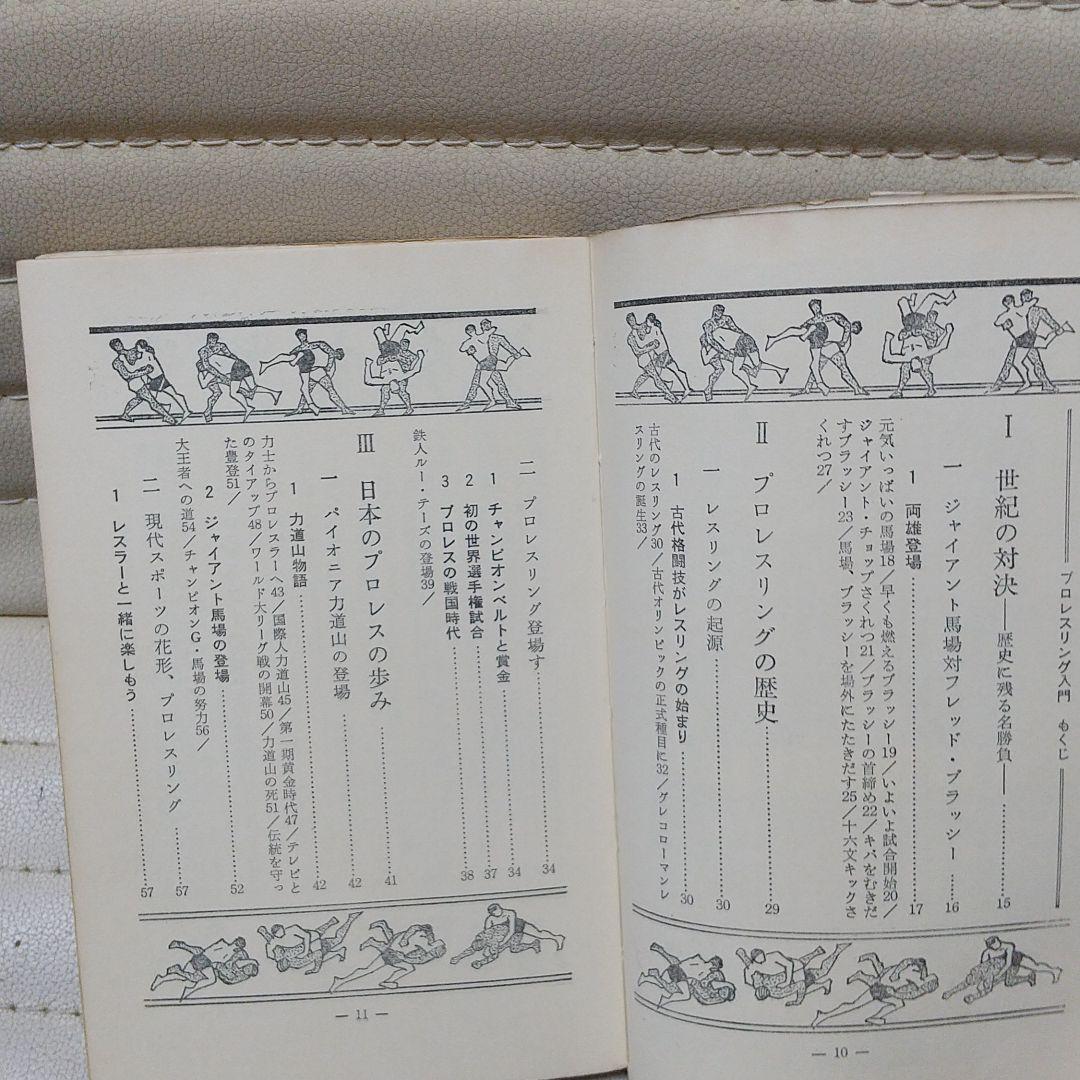 プロレスリング入門 もくじ
Ⅰ 世紀の対決―歴史に残る名勝負―……15
一 ジャイアント馬場対フレッド・ブラッシー……16
1 両雄登場……17
元気いっぱいの馬場18/早くも燃えるブラッシー19/いよいよ試合開始20/
ジャイアント・チョップさくれつ21/ブラッシーの首締め22/キバをむきだ
すブラッシー23/馬場、ブラッシーを場外にたたきだす25/十六文キックさ
くれつ27/
Ⅱ プロレスリングの歴史……29
一 レスリングの起源……30
1 古代格闘技がレスリングの始まり……30
古代のレスリング30/古代オリンピックの正式種目に32/グレコローマンレ
スリングの誕生33/
― 10 ―
二 プロレスリング登場す……34
1 チャンピオンベルトと賞金……34
2 初の世界選手権試合……37
3 プロレスの戦国時代……38
鉄人ルー・テーズの登場39/
Ⅲ 日本のプロレスの歩み……41
一 パイオニア力道山の登場……42
1 力道山物語……42
力士からプロレスラーへ43/国際人力道山45/第一期黄金時代47/テレビと
のタイアップ48/ワールド大リーグ戦の開幕50/力道山の死51/伝統を守っ
た豊登51/
2 ジャイアント馬場の登場……52
大王者への道54/チャンピオンG・馬場の努力56/
二 現代スポーツの花形、プロレスリング……57
1 レスラーと一緒に楽しもう……57
― 11 ―